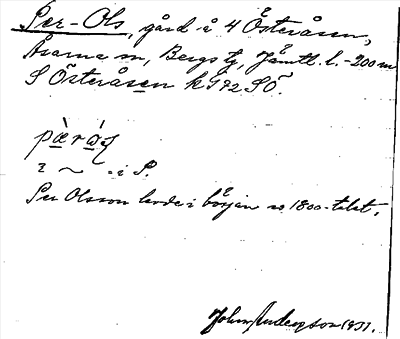 Per-Ols, gård å 4 Österåsen,
Åsarne sn, Bergs tg, Jämtl. l. - 200 m
S Österåsen k 592 SÖ.
i ~ - i P.
Per Olsson levde i början av 1800-talet.
John Anderson 1931.